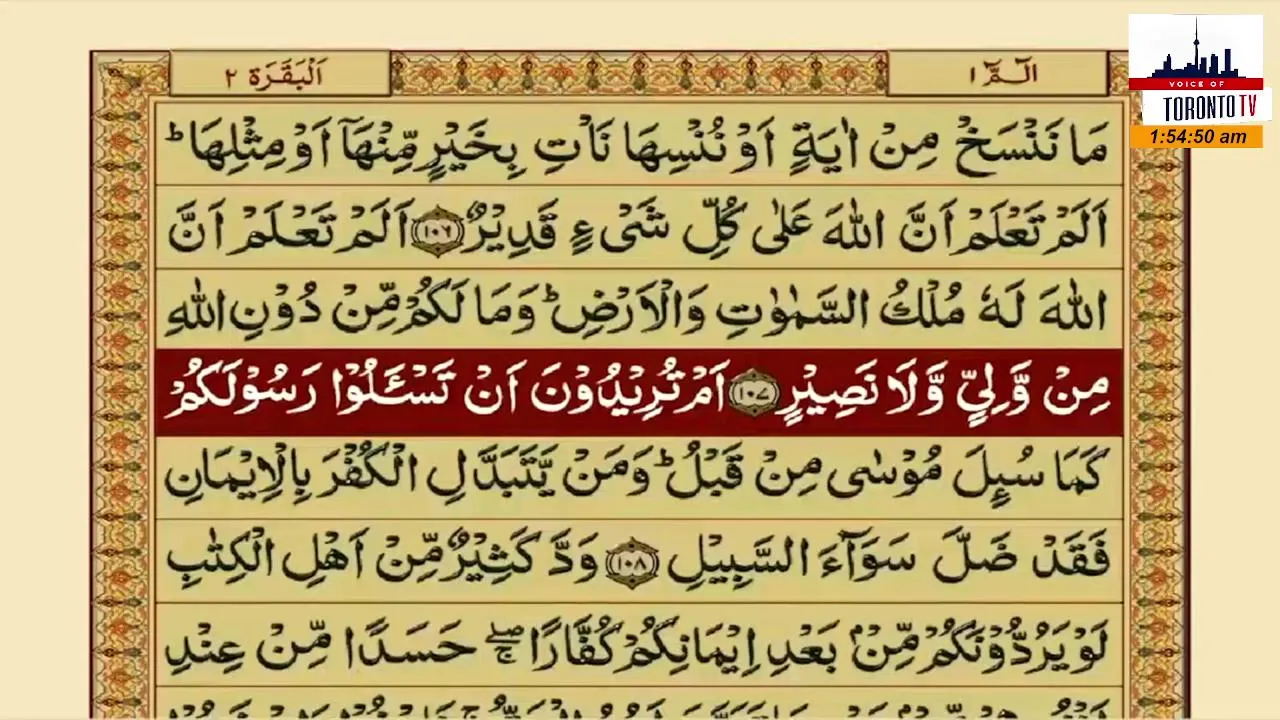 الٓمّٓ ١
اَلْبَقَرَة ٢
VOICE OF
TORONTO TV
1:54:50 am
مَا نَنْسَخْ مِنْ اٰيَةٍ اَوْ نُنْسِهَا نَاْتِ بِخَيْرٍ مِّنْهَاۤ اَوْ مِثْلِهَا ؕ
اَلَمْ تَعْلَمْ اَنَّ اللّٰهَ عَلٰى كُلِّ شَىْءٍ قَدِيْرٌ ﴿١٠٦﴾ اَلَمْ تَعْلَمْ اَنَّ
اللّٰهَ لَهٗ مُلْكُ السَّمٰوٰتِ وَالْاَرْضِ ؕ وَمَا لَكُمْ مِّنْ دُوْنِ اللّٰهِ
مِنْ وَّلِيٍّ وَّلَا نَصِيْرٍ ﴿١٠٧﴾ اَمْ تُرِيْدُوْنَ اَنْ تَسْـَٔلُوْا رَسُوْلَكُمْ
كَمَا سُىِٕلَ مُوْسٰى مِنْ قَبْلُ ؕ وَمَنْ يَّتَبَدَّلِ الْكُفْرَ بِالْاِيْمَانِ
فَقَدْ ضَلَّ سَوَآءَ السَّبِيْلِ ﴿١٠٨﴾ وَدَّ كَثِيْرٌ مِّنْ اَهْلِ الْكِتٰبِ
لَوْ يَرُدُّوْنَكُمْ مِّنْۢ بَعْدِ اِيْمَانِكُمْ كُفَّارًا ۖۚ حَسَدًا مِّنْ عِنْدِ